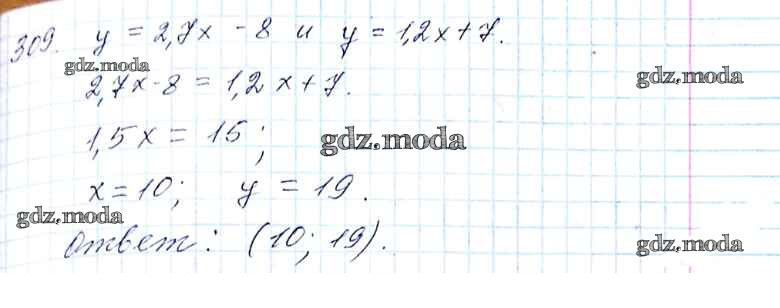 309. y = 2,7x - 8 и y = 1,2x + 7.
gdz.moda
gdz.moda
2,7x - 8 = 1,2x + 7.
1,5x = 15;
gdz.moda
x = 10; y = 19.
gdz.moda
Ответ: (10; 19).
gdz.moda